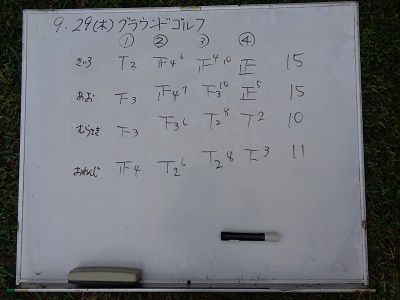 9.29(木)グラウンドゴルフ
① ② ③ ④
きいろ T2 正4 6 正4 10 正 15
あお 下3 正4 7 下3 10 正5 15
むらさき 下3 下3 6 T2 8 T2 10
おれんじ 正4 T2 6 T2 8 下3 11